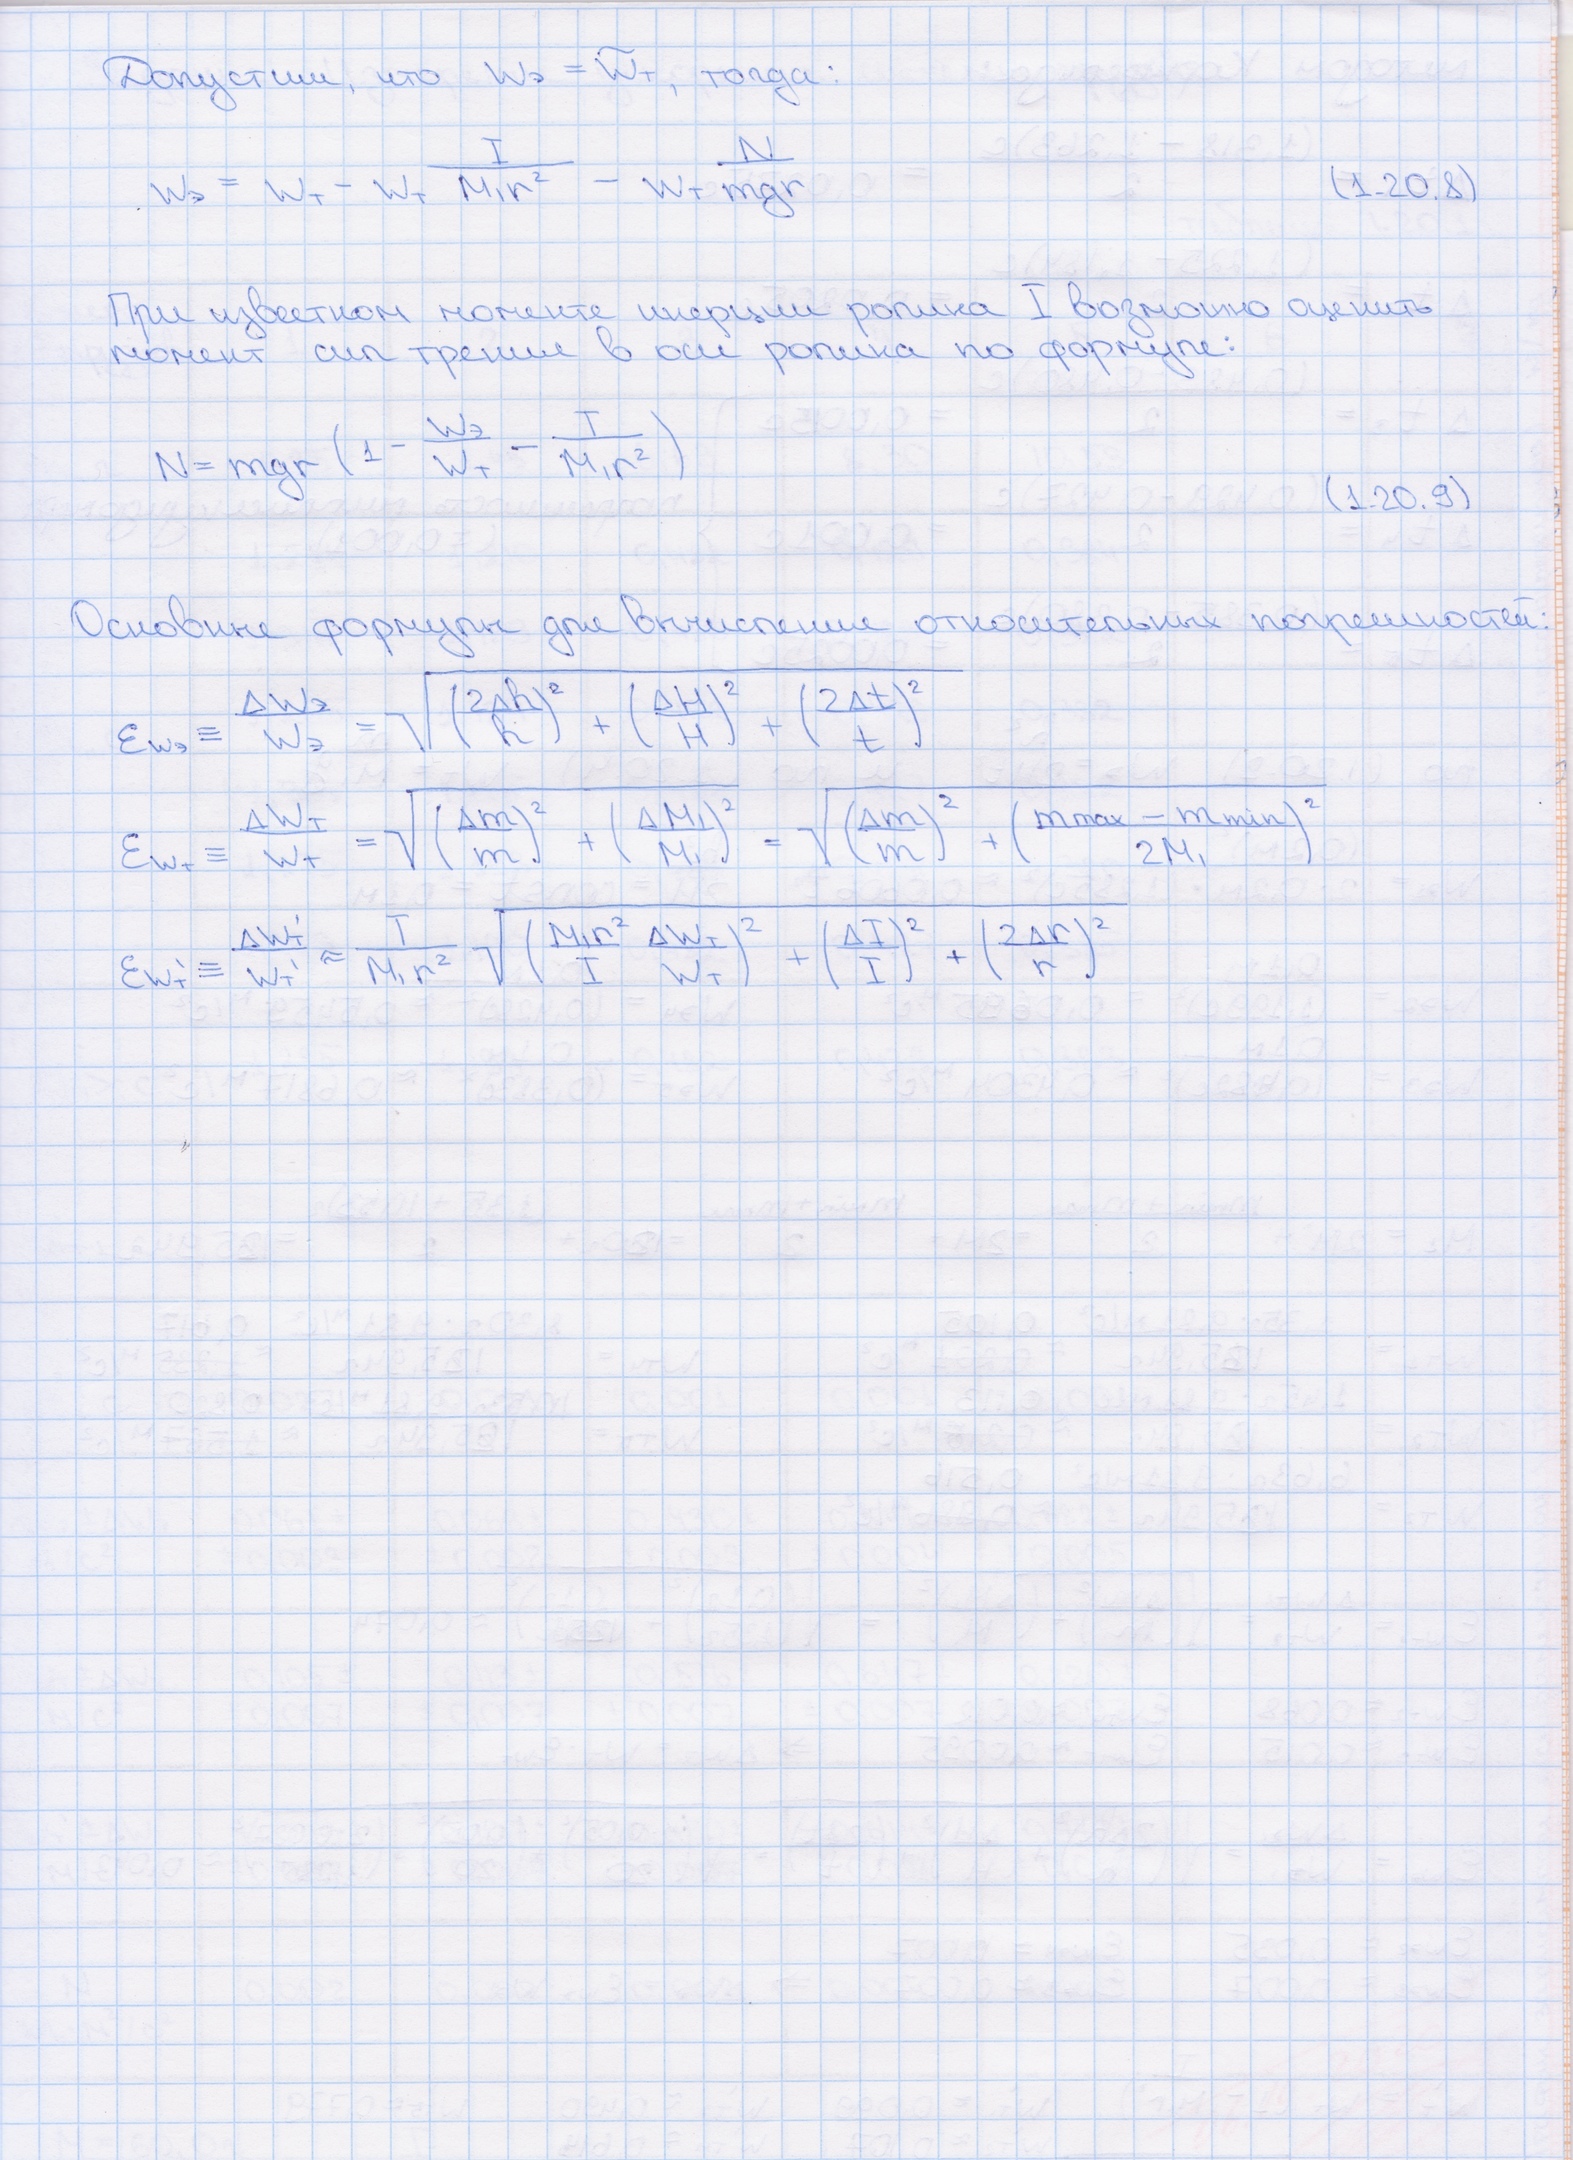 Допустим, что Wэ = W̃т, тогда:
Wэ = Wт - Wт I/(M₁r²) - Wт N/(mgr) (1.20.8)
При известном моменте инерции ролика I возможно оценить
момент сил трения в оси ролика по формуле:
N = mgr (1 - Wэ/Wт - I/(M₁r²))
(1.20.9)
Основные формулы для вычисления относительных погрешностей:
εWэ ≡ ΔWэ/Wэ = √((2Δh/h)² + (ΔH/H)² + (2Δt/t)²)
εWт ≡ ΔWт/Wт = √((Δm/m)² + (ΔM₁/M₁)²) = √((Δm/m)² + ((mmax - mmin)/2M₁)²)
εWт' ≡ ΔWт'/Wт' ≈ I/(M₁r²) √((M₁r²/I ΔWт/Wт)² + (ΔI/I)² + (2Δr/r)²)